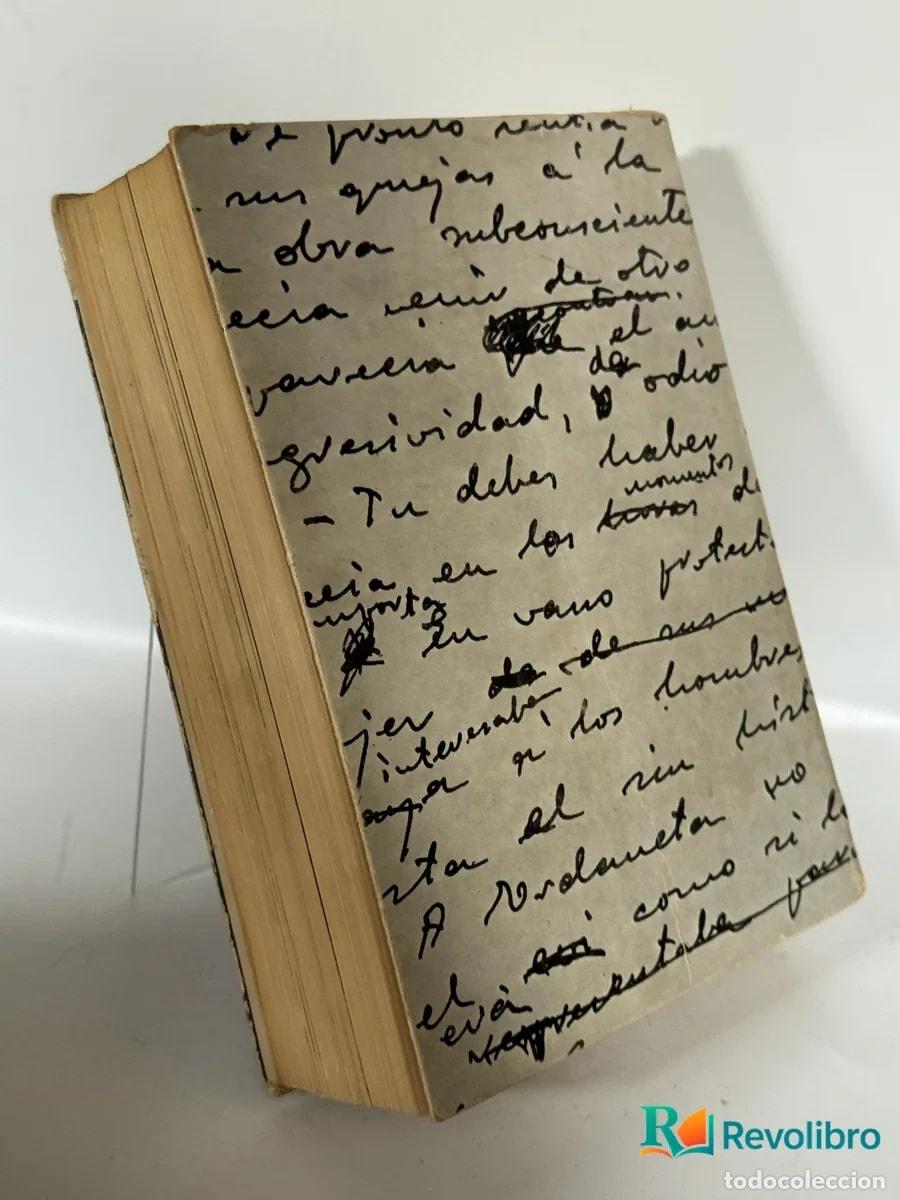 de pronto sentia
sus quejas á la
obra subconsciente
ecia venir de otro
parecia el au
de
gresividad, odio
- Tu debes haber
momentos
ecia, en los horas de
importa
En vano protest
jer da de sus
interesaba
á los hombres
sta el sin hist
A Urdaneta no
el como si l
era
representaba para
Revolibro
todocoleccion